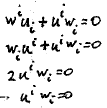 wⁱuᵢ + uⁱwᵢ = 0
wᵢuⁱ + uⁱwᵢ = 0
2uⁱwᵢ = 0
→ uⁱwᵢ = 0